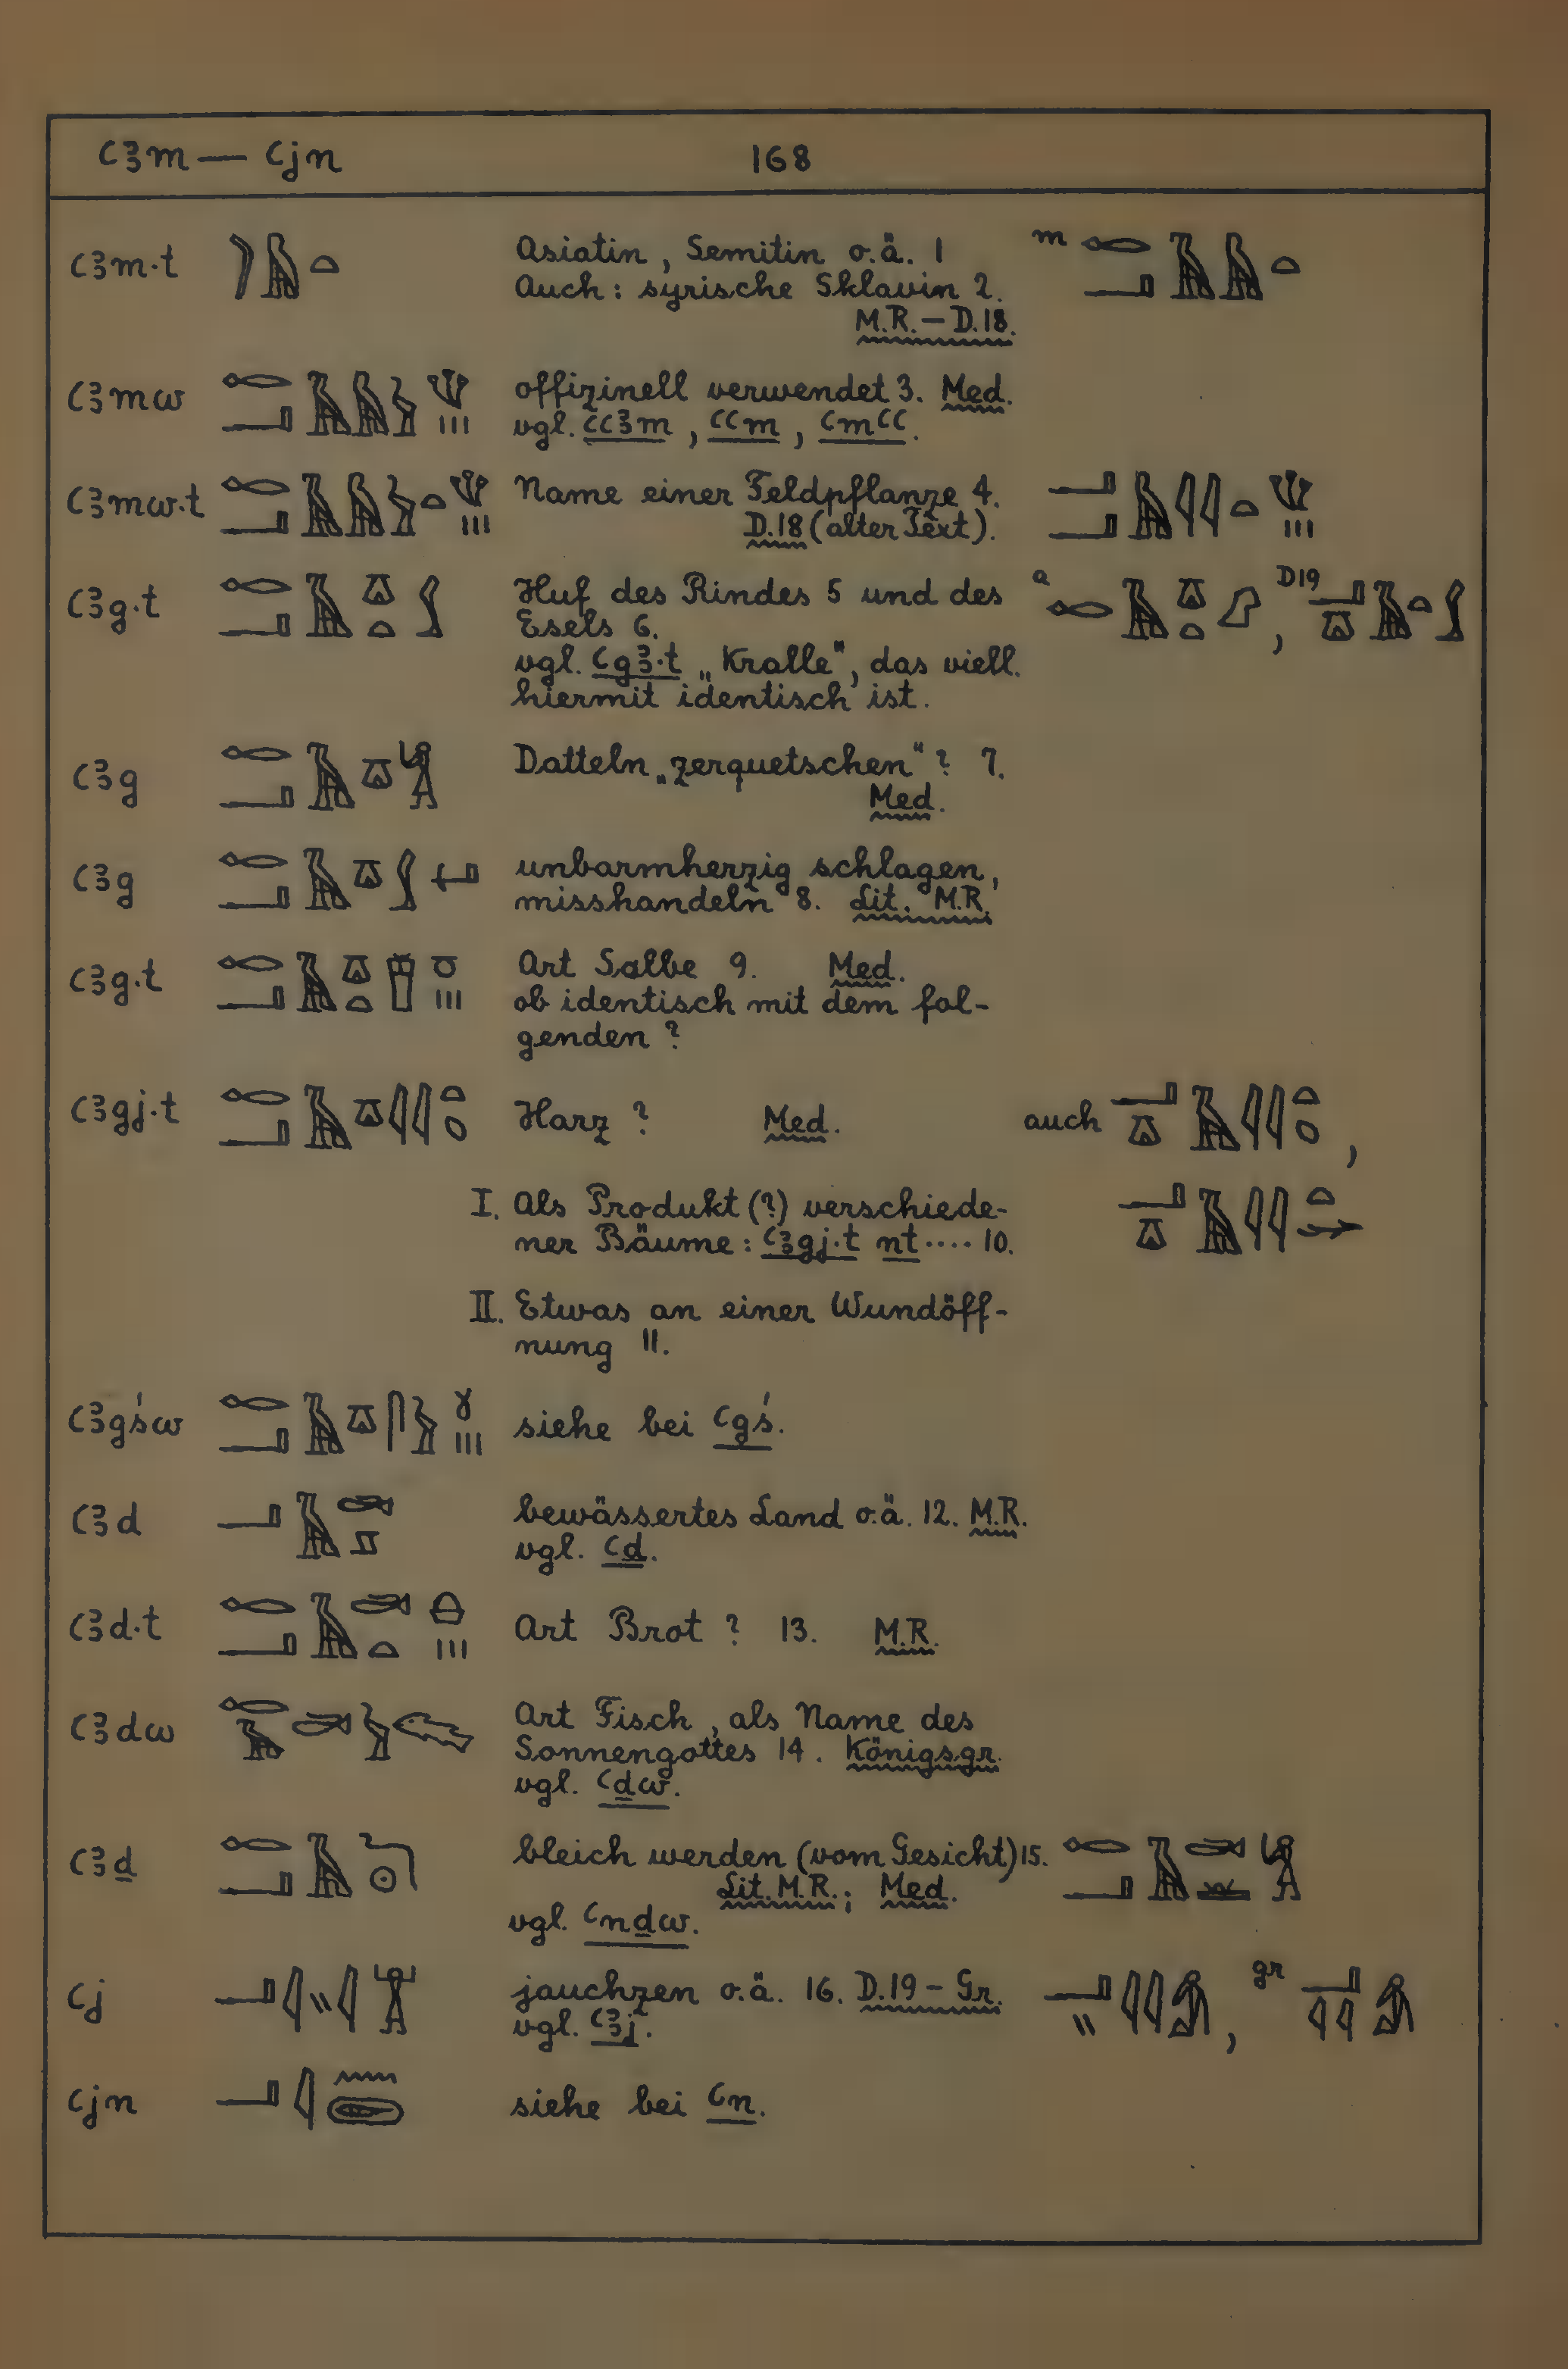 ꜥꜣm — ꜥjn 168
ꜥꜣm·t Asiatin, Semitin o.ä. 1 m
Auch: syrische Sklavin 2.
M.R. – D.18.
ꜥꜣmw offizinell verwendet 3. Med.
vgl. ꜥꜥꜣm, ꜥꜥm, ꜥmꜥꜥ.
ꜥꜣmw·t Name einer Feldpflanze 4.
D.18 (alter Text).
ꜥꜣg·t Huf des Rindes 5 und des a , D19
Esels 6.
vgl. ꜥgꜣ·t „Kralle", das viell.
hiermit identisch ist.
ꜥꜣg Datteln „zerquetschen"? 7.
Med.
ꜥꜣg unbarmherzig schlagen,
misshandeln 8. Lit. M.R.
ꜥꜣg·t Art Salbe 9. Med.
ob identisch mit dem fol-
genden?
ꜥꜣgj·t Harz? Med. auch ,
I. Als Produkt (?) verschiede-
ner Bäume: ꜥꜣgj·t nt .... 10.
II. Etwas an einer Wundöff-
nung 11.
ꜥꜣgśw siehe bei ꜥgś.
ꜥꜣd bewässertes Land o.ä. 12. M.R.
vgl. ꜥḏ.
ꜥꜣd·t Art Brot? 13. M.R.
ꜥꜣdw Art Fisch, als Name des
Sonnengottes 14. Königsgr.
vgl. ꜥḏw.
ꜥꜣḏ bleich werden (vom Gesicht) 15.
Lit. M.R.; Med.
vgl. ꜥnḏw.
ꜥj jauchzen o.ä. 16. D.19 – Gr. , gr
vgl. ꜥꜣj.
ꜥjn siehe bei ꜥn.